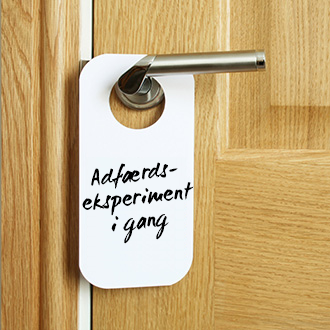 Adfærds-
eksperiment
i gang